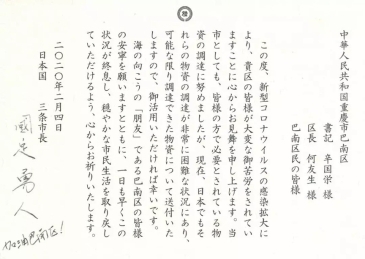 中華人民共和国重慶市巴南区
書記 辛国栄 様
区長 何友生 様
巴南区民の皆様
この度、新型コロナウイルスの感染拡大に
より、貴区の皆様が大変な御苦労をされてい
ますことに心からお見舞を申し上げます。当
市としても、皆様の方で必要とされている物
資の調達に努めましたが、現在、日本でもそ
れらの物資の調達が非常に困難な状況にあり、
可能な限り調達できた物資について送付いた
しますので、御活用いただければ幸いです。
海の向こうの「朋友」である巴南区の皆様
の安寧を願いますとともに、一日も早くこの
状況が終息し、穏やかな市民生活を取り戻し
ていただけるよう、心からお祈りいたします。
二〇二〇年二月四日
日本国 三条市長
國定勇人
加油巴南区!